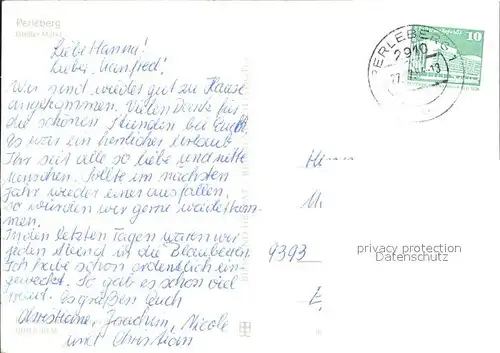 Perleberg
Großer Markt
Liebe Hanni!
Lieber Manfred!
Wir sind wieder gut zu Hause
angekommen. Vielen Dank für
die schönen Stunden bei Euch.
Es war ein herrlicher Urlaub
Ihr seit alle so liebe und nette
Menschen. Sollte im nächsten
Jahr wieder einer ausfallen,
so würden wir gerne wiederkom-
men.
In den letzten Tagen waren wir
jeden Abend in die Blaubeeren.
Ich habe schon ordentlich ein-
geweckt. So gab es schon viel
Es grüßen Euch
Christiane, Joachim, Nicole
und Christian
PERLEBERG 1
2910
10
9393
privacy protection
Datenschutz